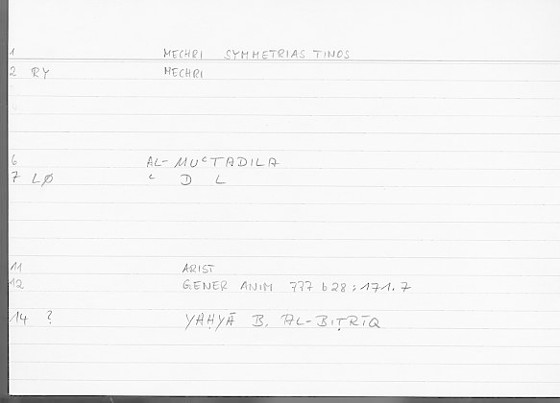 1 MECHRI SYMMETRIAS TINOS
2 RY MECHRI
6 AL-MUʿTADILA
7 LØ ʿ D L
11 ARIST
12 GENER ANIM 777 b28 : 171.7
14 ? YAḤYĀ B. AL-BIṬRĪQ